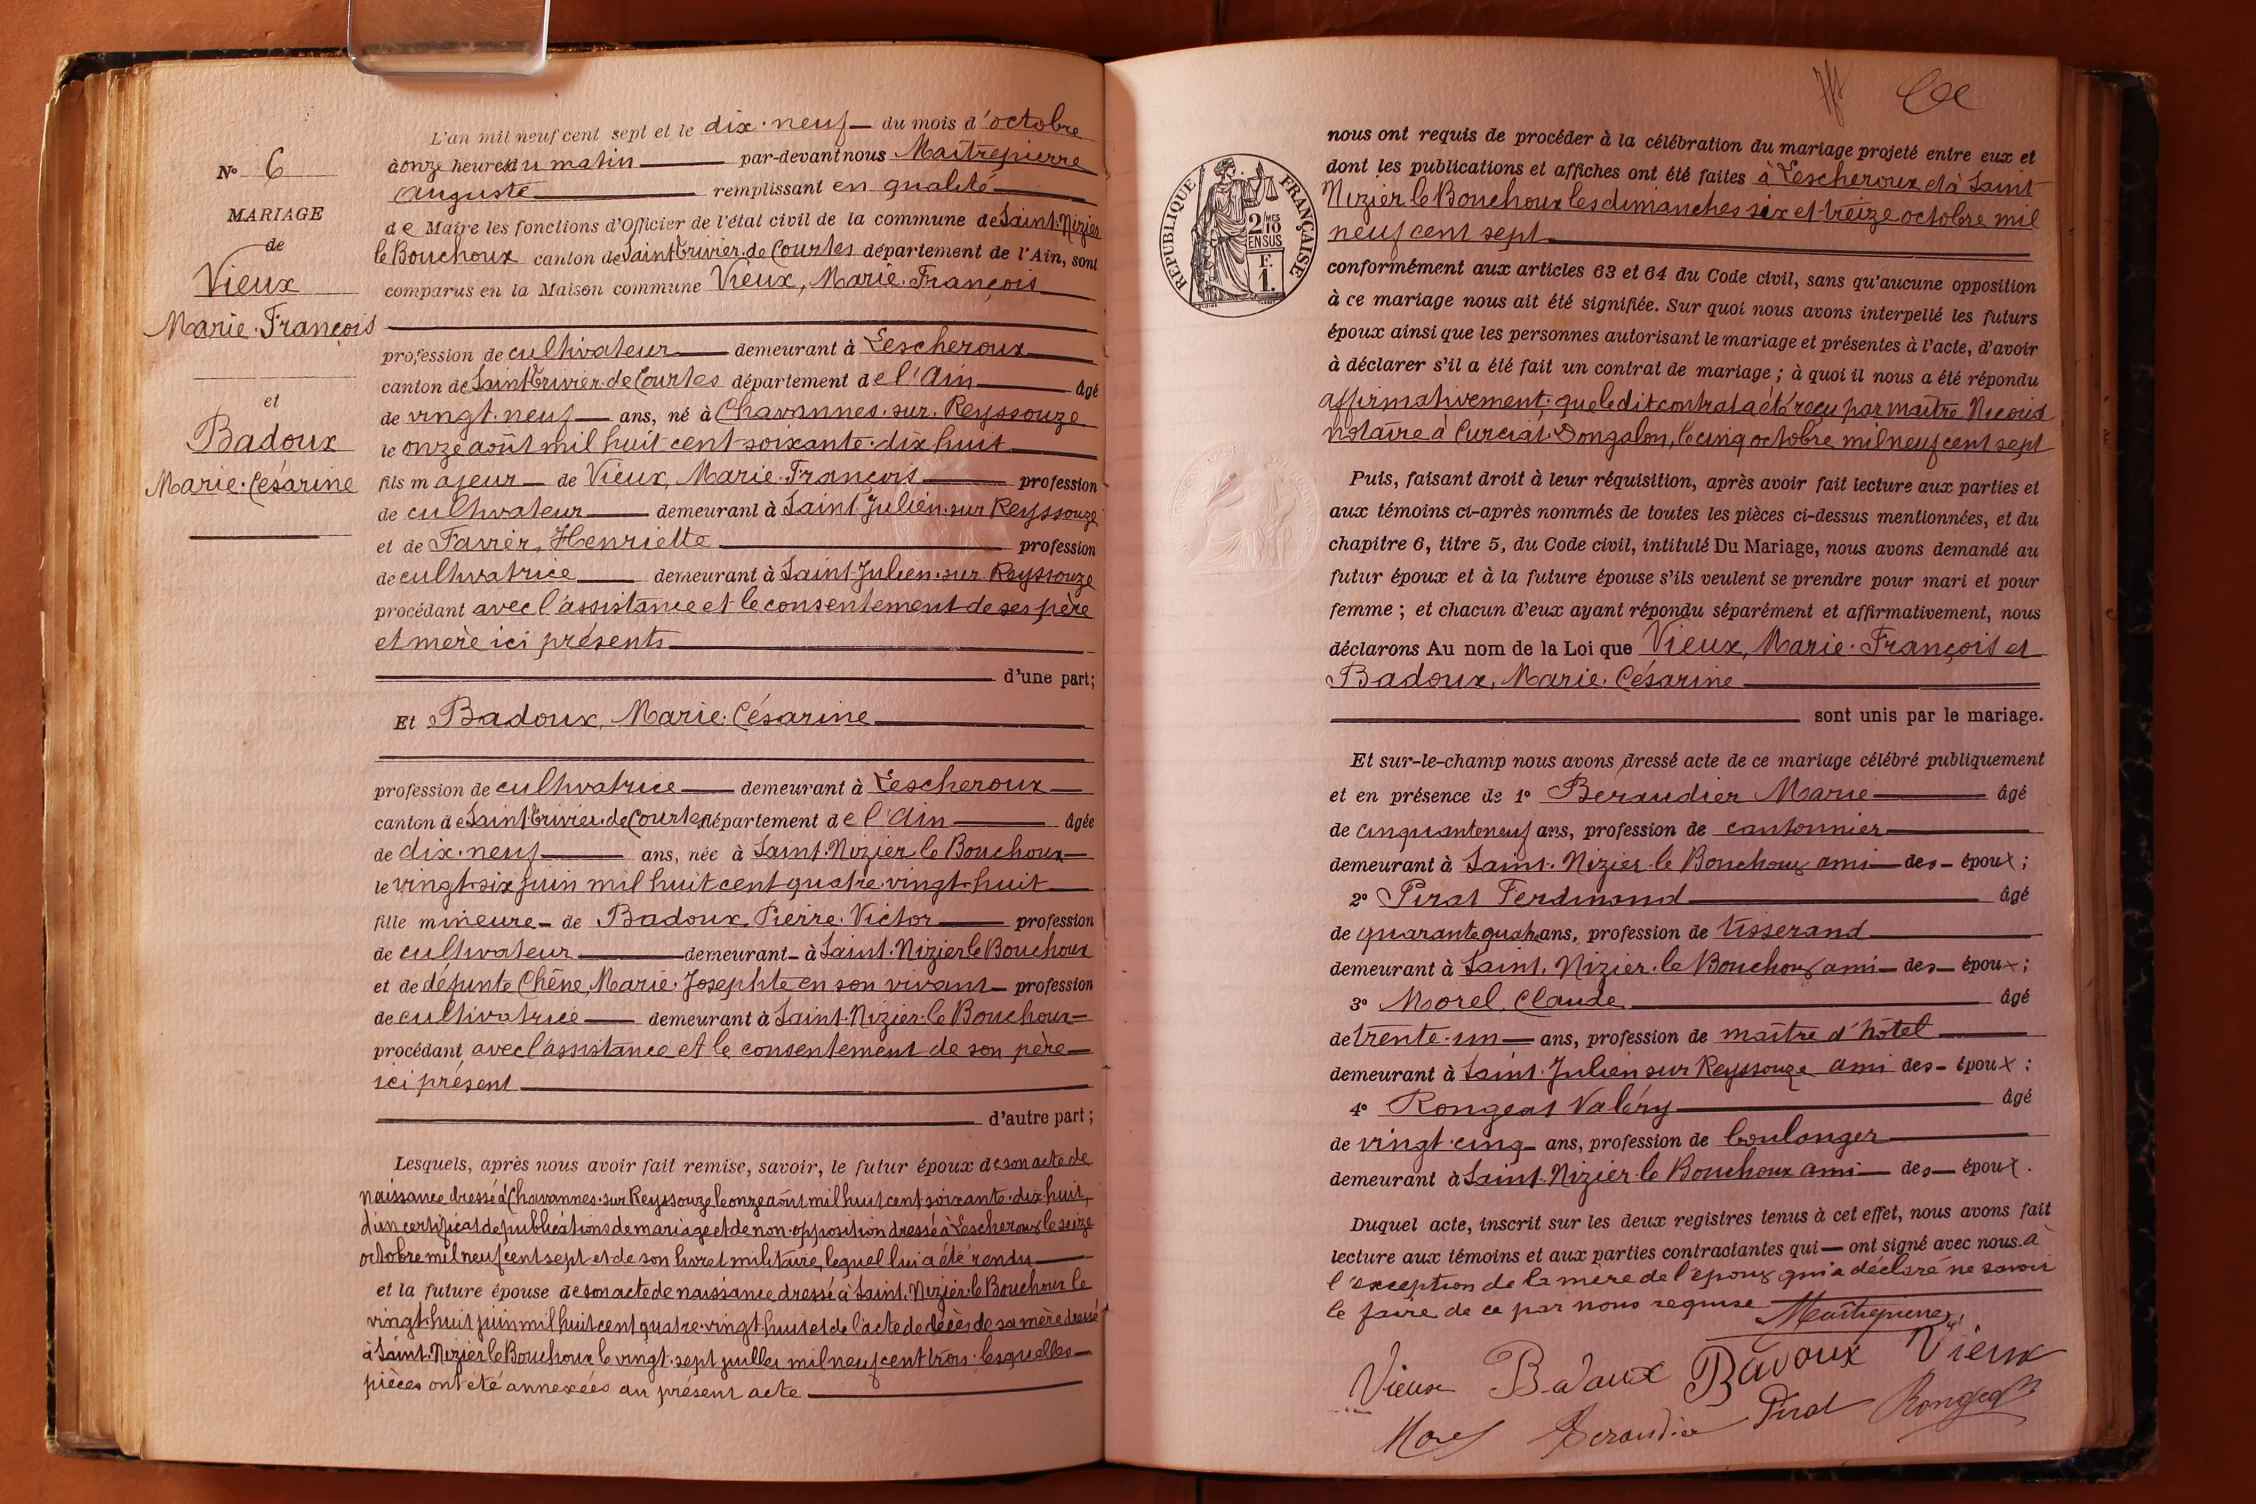 N° 6
MARIAGE
de
Vieux
Marie-François
et
Badoux
Marie-Césarine
L'an mil neuf cent sept et le dix-neuf du mois d'octobre
à onze heures du matin par-devant nous Maîtrepierre
Auguste remplissant en qualité
de Maire les fonctions d'Officier de l'état civil de la commune de Saint-Nizier
le Bouchoux canton de Saint Trivier de Courtes département de l'Ain, sont
comparus en la Maison commune Vieux, Marie-François
profession de cultivateur demeurant à Lescheroux
canton de Saint Trivier de Courtes département de l'Ain âgé
de vingt-neuf ans, né à Chavannes-sur-Reyssouze
le onze août mil huit cent soixante-dix huit
fils majeur de Vieux, Marie-François profession
de cultivateur demeurant à Saint Julien-sur Reyssouze
et de Favier, Henriette profession
de cultivatrice demeurant à Saint-Julien-sur Reyssouze
procédant avec l'assistance et le consentement de ses père
et mère ici présents
d'une part;
Et Badoux, Marie-Césarine
profession de cultivatrice demeurant à Lescheroux
canton de Saint Trivier de Courtes département de l'Ain âgée
de dix-neuf ans, née à Saint-Nizier le Bouchoux
le vingt-six juin mil huit cent quatre-vingt-huit
fille mineure de Badoux, Pierre-Victor profession
de cultivateur demeurant à Saint-Nizier le Bouchoux
et de défunte Chêne, Marie-Josephte en son vivant profession
de cultivatrice demeurant à Saint-Nizier-le Bouchoux
procédant avec l'assistance et le consentement de son père
ici présent
d'autre part;
Lesquels, après nous avoir fait remise, savoir, le futur époux de son acte de
naissance dressé à Chavannes-sur Reyssouze le onze août mil huit cent soixante-dix huit,
d'un certificat de publications de mariage et de non-opposition dressé à Lescheroux le seize
octobre mil neuf cent sept et de son livret militaire, lequel lui a été rendu
et la future épouse de son acte de naissance dressé à Saint-Nizier-le Bouchoux le
vingt-huit juin mil huit cent quatre-vingt huit et de l'acte de décès de sa mère dressé
à Saint-Nizier le Bouchoux le vingt-sept juillet mil neuf cent trois-lesquelles
pièces ont été annexées au présent acte
RÉPUBLIQUE FRANÇAISE
2/10 MES
EN SUS
F.
1.
nous ont requis de procéder à la célébration du mariage projeté entre eux et
dont les publications et affiches ont été faites à Lescheroux et à Saint
Nizier le Bouchoux les dimanches six et treize octobre mil
neuf cent sept
conformément aux articles 63 et 64 du Code civil, sans qu'aucune opposition
à ce mariage nous ait été signifiée. Sur quoi nous avons interpellé les futurs
époux ainsi que les personnes autorisant le mariage et présentes à l'acte, d'avoir
à déclarer s'il a été fait un contrat de mariage; à quoi il nous a été répondu
affirmativement-que ledit contrat a été reçu par maître
notaire à Curciat-Dongalon, le cinq octobre mil neuf cent sept
Puis, faisant droit à leur réquisition, après avoir fait lecture aux parties et
aux témoins ci-après nommés de toutes les pièces ci-dessus mentionnées, et du
chapitre 6, titre 5, du Code civil, intitulé Du Mariage, nous avons demandé au
futur époux et à la future épouse s'ils veulent se prendre pour mari et pour
femme; et chacun d'eux ayant répondu séparément et affirmativement, nous
déclarons Au nom de la Loi que Vieux, Marie-François et
Badoux, Marie-Césarine
sont unis par le mariage.
Et sur-le-champ nous avons dressé acte de ce mariage célébré publiquement
et en présence de 1° Beraudier Marie âgé
de cinquante neuf ans, profession de cantonnier
demeurant à Saint-Nizier-le Bouchoux ami des époux;
2° Pirat Ferdinand âgé
de quarante quatre ans, profession de tisserand
demeurant à Saint-Nizier-le Bouchoux ami des époux;
3° Morel, Claude âgé
de trente-un ans, profession de maître d'hôtel
demeurant à Saint-Julien sur Reyssouze ami des époux;
4° Rongeat Valéry âgé
de vingt-cinq ans, profession de boulanger
demeurant à Saint-Nizier-le Bouchoux ami des époux.
Duquel acte, inscrit sur les deux registres tenus à cet effet, nous avons fait
lecture aux témoins et aux parties contractantes qui ont signé avec nous à
l'exception de la mère de l'époux qui a déclaré ne savoir
le faire de ce par nous requise Maîtrepierre
Vieux Badoux Badoux Vieux
Morel Beraudier Pirat Rongeat